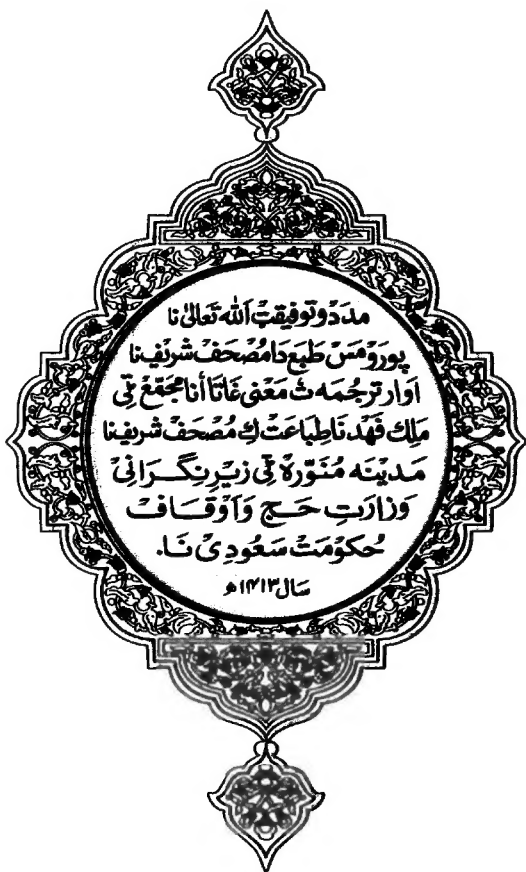 مدَد و توفیقٹ اَللہ تَعَالیٰ نا
پورَو مَسْ طبَع دَا مُصْحَفْ شرِیْف نا
اَوار ترجُمَہ ٹ مَعْنیٰ غَاتَا أنَا مجَمَّعْ ٹی
مَلِك فَهْد نَا طِبَاعَتْ كِ مُصْحَفْ شرِیفنا
مَدیْنَه مُنَوَّرَہْ ٹی زیْرِ نِگَرَانیْ
وَزارَتِ حَجْ وَاَوْقَافْ
حُکوْمَتْ سَعُودِیْ نَا.
سَال ۱۴۱۳ھ